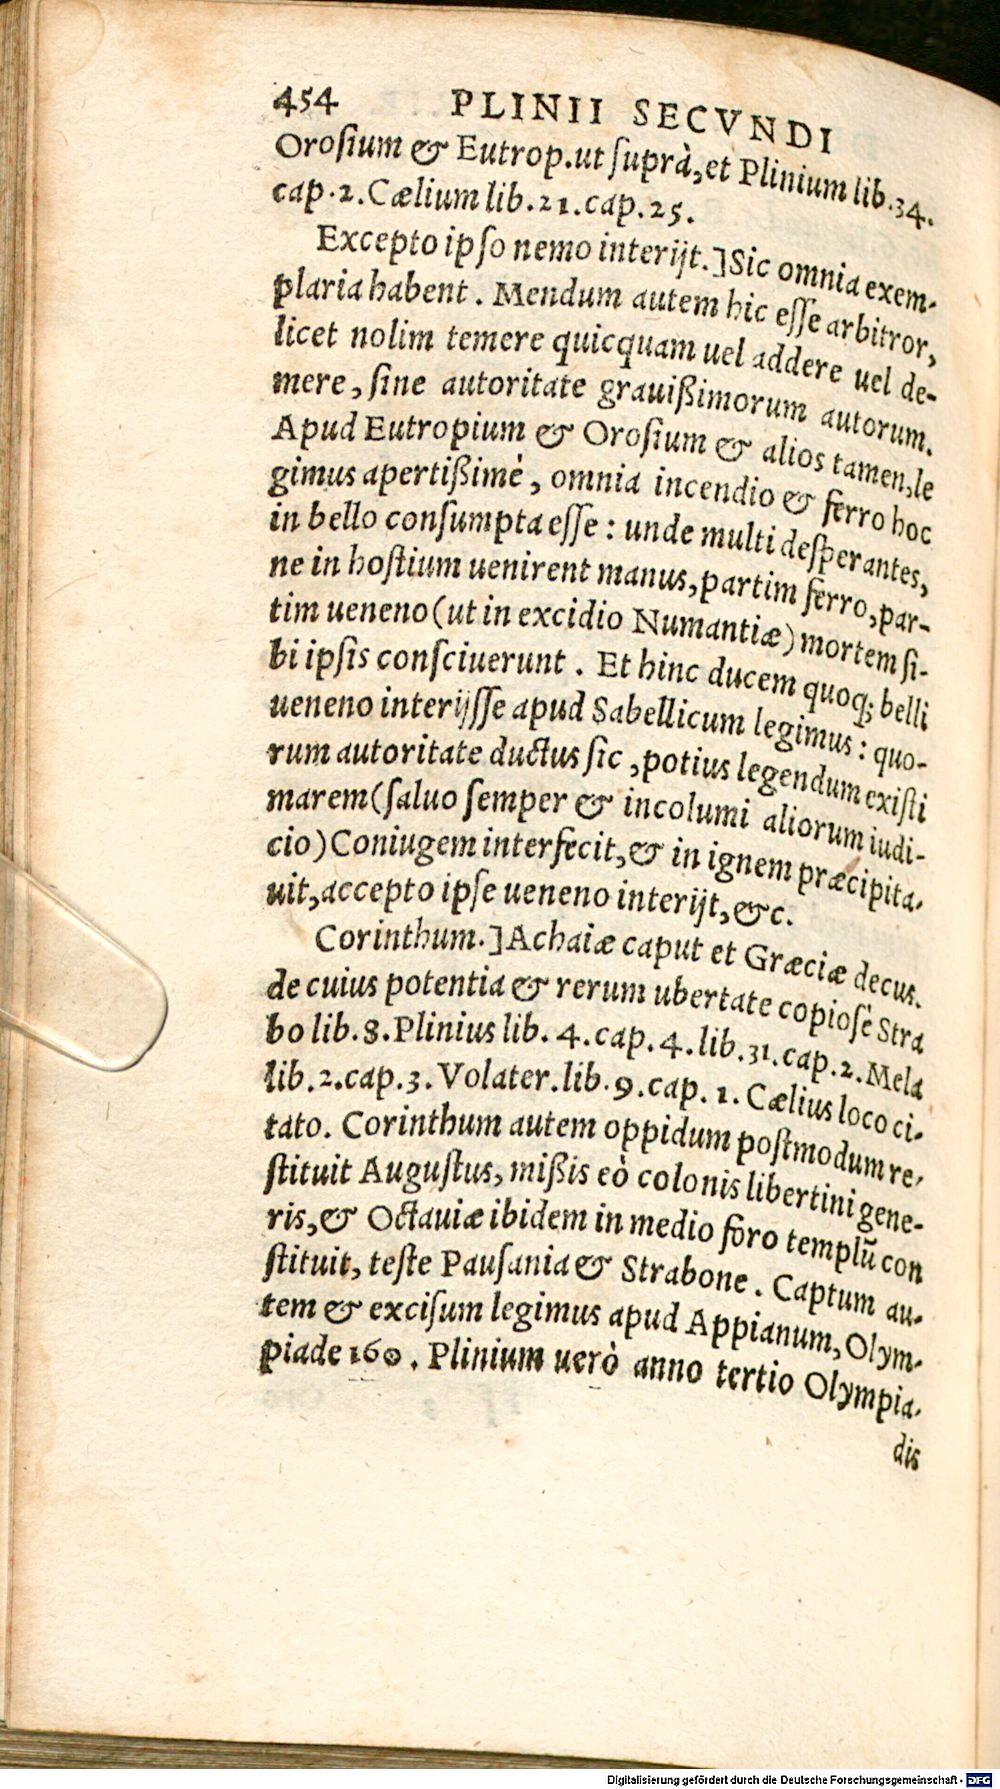 454 PLINII SECVNDI
Orosium & Eutrop. ut suprà, et Plinium lib. 34.
cap. 2. Cælium lib. 21. cap. 25.
Excepto ipso nemo interijt.] Sic omnia exem-
plaria habent. Mendum autem hic esse arbitror,
licet nolim temere quicquam uel addere uel de-
mere, sine autoritate grauißimorum autorum.
Apud Eutropium & Orosium & alios tamen, le
gimus apertißimè, omnia incendio & ferro hoc
in bello consumpta esse: unde multi desperantes,
ne in hostium uenirent manus, partim ferro, par-
tim ueneno (ut in excidio Numantiæ) mortem si-
bi ipsis consciuerunt. Et hinc ducem quoq; belli
ueneno interijsse apud Sabellicum legimus: quo-
rum autoritate ductus sic, potius legendum existi
marem (saluo semper & incolumi aliorum iudi-
cio) Coniugem interfecit, & in ignem præcipita-
uit, accepto ipse ueneno interijt, &c.
Corinthum.] Achaiæ caput et Græciæ decus.
de cuius potentia & rerum ubertate copiose Stra
bo lib. 8. Plinius lib. 4. cap. 4. lib. 31. cap. 2. Mela
lib. 2. cap. 3. Volater. lib. 9. cap. 1. Cælius loco ci-
tato. Corinthum autem oppidum postmodum re-
stituit Augustus, mißis eò colonis libertini gene-
ris, & Octauiæ ibidem in medio foro templũ con
stituit, teste Pausania & Strabone. Captum au-
tem & excisum legimus apud Appianum, Olym-
piade 160. Plinium uerò anno tertio Olympia-
dis
Digitalisierung gefördert durch die Deutsche Forschungsgemeinschaft - DFG